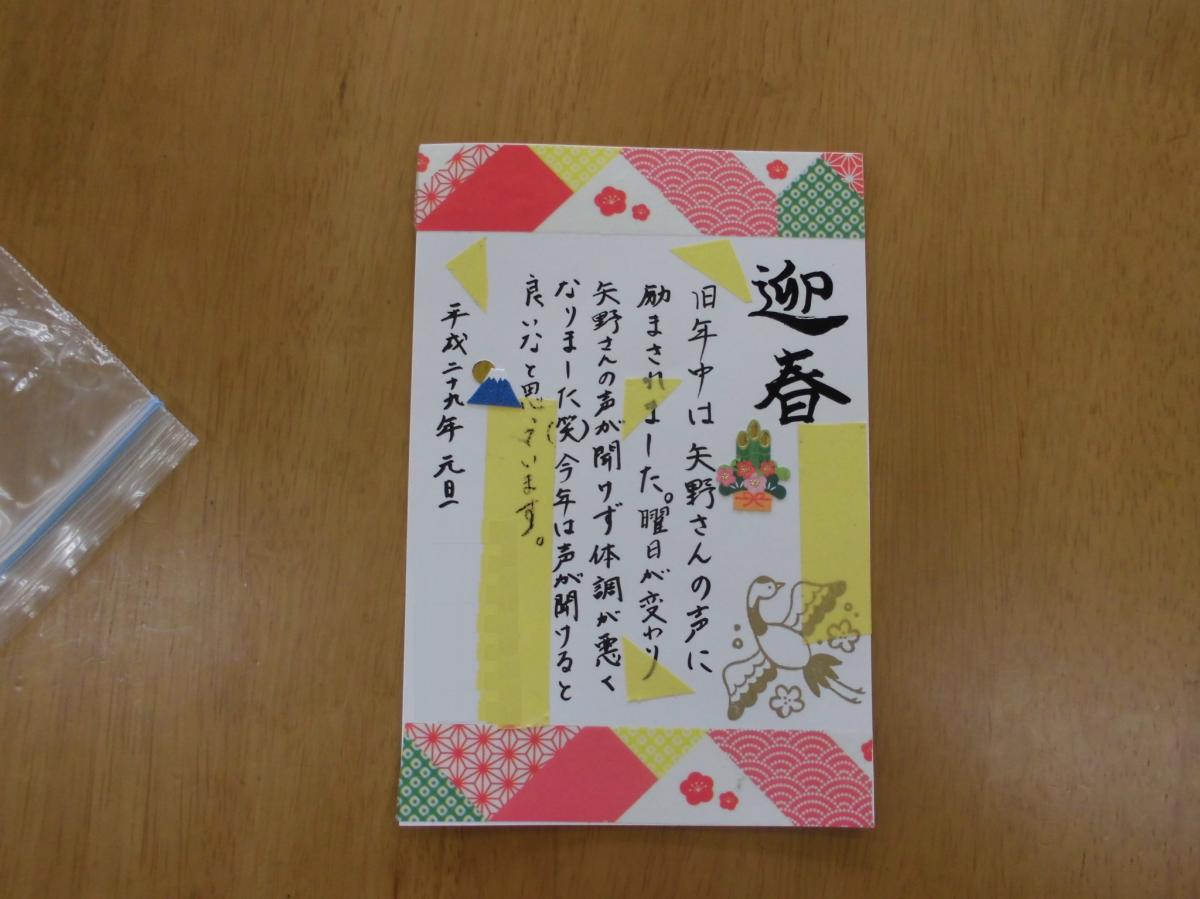 迎春
旧年中は矢野さんの声に
励まされました。曜日が変わり
矢野さんの声が聞けず体調が悪く
なりました(笑)今年は声が聞けると
良いなと思っています。
平成二十九年 元旦